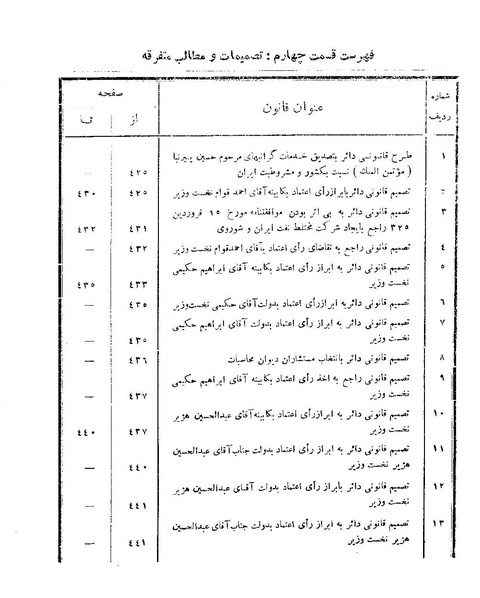 فهرست قسمت چهارم : تصمیمات و مطالب متفرقه
شماره ردیف عنوان قانون صفحه از تا
۱ طرح قانونی دائر بتصدیق خدمات گرانبهای مرحوم حسین پیرنیا
( مؤتمن الملك ) نسبت بکشور و مشروطیت ایران ٤٢٥ —
۲ تصمیم قانونی دائر بابرازرأی اعتماد بکابینه آقای احمد قوام نخست وزیر ٤٢٥ ٤٣٠
۳ تصمیم قانونی دائر به بی اثر بودن موافقتنامه مورخ ١٥ فروردین
٣٢٥ راجع بایجاد شرکت مختلط نفت ایران و شوروی ٤٣١ ٤٣٢
٤ تصمیم قانونی راجع به تقاضای رأی اعتماد بآقای احمدقوام نخست وزیر ٤٣٢ —
٥ تصمیم قانونی دائر به ابراز رأی اعتماد بکابینه آقای ابراهیم حکیمی
نخست وزیر ٤٣٣ ٤٣٥
٦ تصمیم قانونی دائر به ابرازرأی اعتماد بدولت آقای حکیمی نخست وزیر ٤٣٥ —
۷ تصمیم قانونی دائر به ابراز رأی اعتماد بدولت آقای ابراهیم حکیمی
نخست وزیر ٤٣٥ —
۸ تصمیم قانونی دائر بانتخاب مستشاران دیوان محاسبات ٤٣٦ —
۹ تصمیم قانونی راجع به اخذ رأی اعتماد بکابینه آقای ابراهیم حکیمی
نخست وزیر ٤٣٧ —
۱۰ تصمیم قانونی دائر به ابرازرأی اعتماد بکابینه آقای عبدالحسین هژیر
نخست وزیر ٤٣٧ ٤٤٠
۱۱ تصمیم قانونی دائر به ابراز رأی اعتماد بدولت جناب آقای عبدالحسین
هژیر نخست وزیر ٤٤٠ —
۱۲ تصمیم قانونی دائر بابراز رأی اعتماد بدولت آقای عبدالحسین هژیر
نخست وزیر ٤٤١ —
۱۳ تصمیم قانونی دائر به ابراز رأی اعتماد بدولت جناب آقای عبدالحسین
هژیر نخست وزیر ٤٤١ —